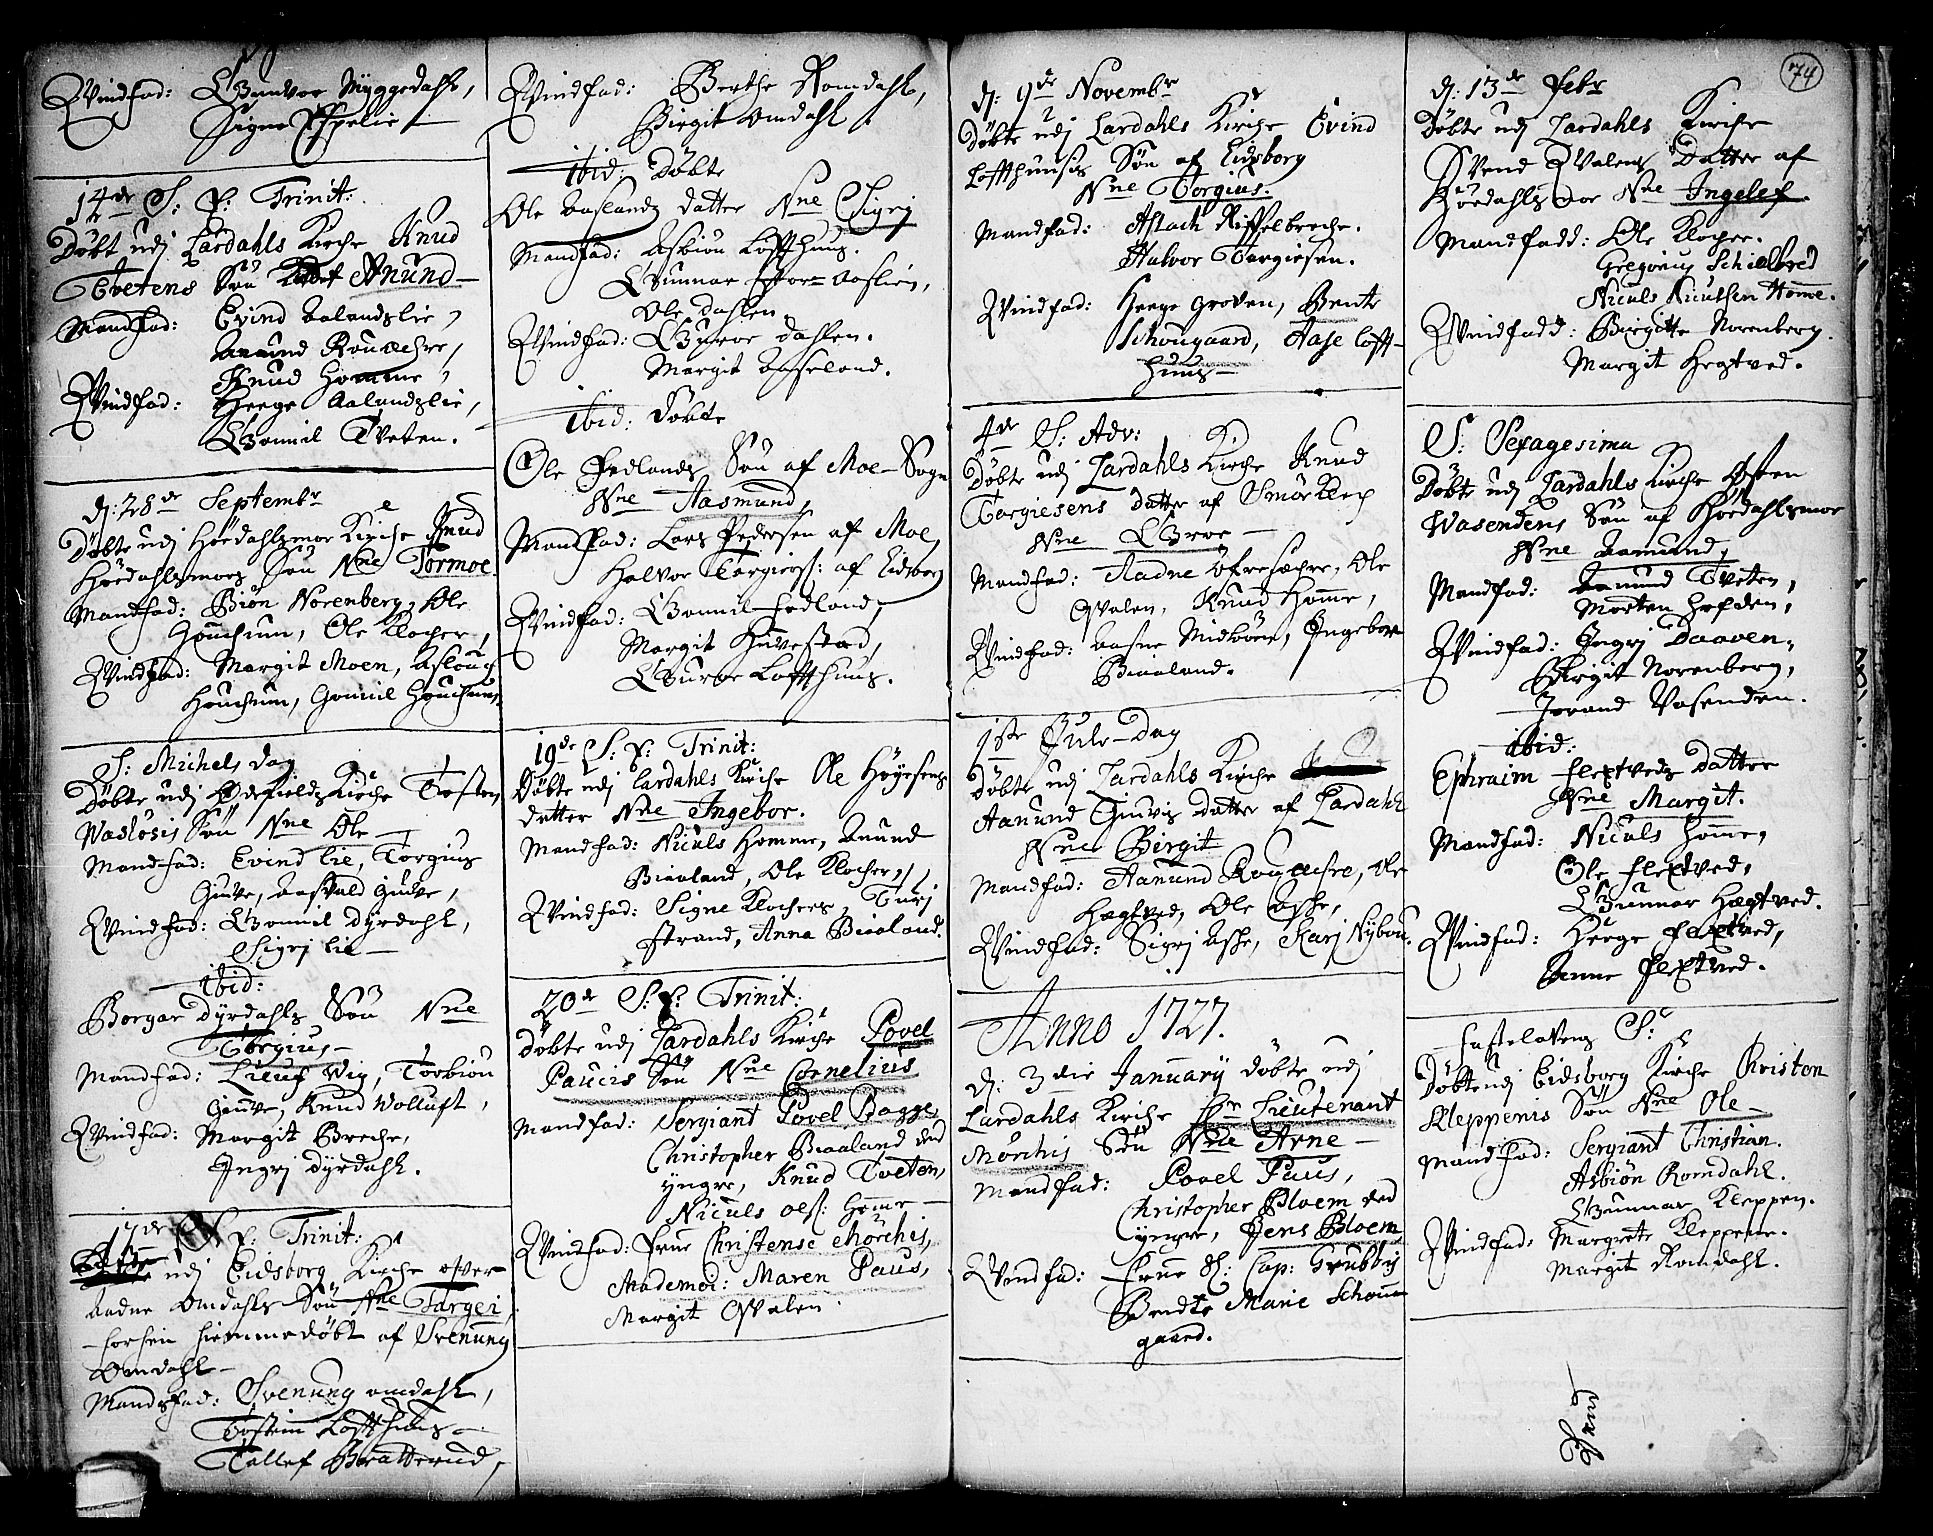 Qvindfad: Gunvor Myggedahl,
Signe Espelie
14de S: P: Trinit:
Døbt udj Lardahls Kirche Knud
Tvetens Søn kaldet Anund
Mandfad: Evind Aalandslie,
Aanund Rougchre,
Knud Homme,
Qvindfad: Herge Aalandslie,
Gunnil Tveten.
d: 28de Septembr
Døbte udj Høidahlsmoe Kirche Knud
Høidahlsmoes Søn Nne Tormoe.
Mandfad: Biøn Norenberg, Ole
Houchum, Ole Klocher,
Qvindfad: Margit Moen, Asloug
Houchum, Gonnil Houchum,
S: Michels dag
Døbte udj Kirche Tosten
Søn Nne Ole
Mandfad: Evind Lie, Torgius
Giuve, Aasvald Giuve,
Qvindfad: Gonnil Dyrdahl,
Sigrj Lie
ibid:
Borgar Dyrdahls Søn Nne
Torgius
Mandfad: Lieuf Vig, Torbiøn
Giuve, Knud Wolluft,
Qvindfad: Margit Breche,
Ingrj Dyrdahl.
17de S: P: Trinit:
udj Eidsborg Kirche
Aadne Omdahls Søn Nne Targei,
forhen hiemmedøbt af Svenung
Omdahl
Mandfad: Svenung Omdahl,
Tostein Loffthuus
Tallef Bratterud,
Qvindfad: Berthe Romdahl,
Birgit Omdahl
ibid: Døbte
Ole Aaslands datter Nne Sigrj
Mandfad: Asbiøn Loffthuus.
Gunnar Aaslien,
Ole Dahlen
Qvindfad: Guroe Dahlen.
Margit Aaseland.
ibid: Døbte
Ole Fedlands Søn af Moe Sogn
Nne Aasmund,
Mandfad: Lars Pedersen af Moe,
Halvor Torgiers: af Eidsborg
Qvindfad: Gonnil Fedland,
Margit Huvestad,
Guroe Loffthuus.
19de S: P: Trinit:
Døbte udj Lardahls Kirche Ole Høyesens
datter Nne Ingebor.
Mandfad: Niculs Homme, Anund
Biaaland, Ole Klocher,
Qvindfad: Signe Klochers, Turj
Strand, Anna Biaaland.
20de S: P: Trinit:
Døbte udj Lardahls Kirche Povel
Paucis Søn Nne Cornelius
Mandfad: Sergiant Povel Bagge,
Christopher Biaaland ded
yngre, Knud Tveten,
Niculs Ols: Homme
Qvindfad: Frue Christense Mørchis,
Mademoi: Maren Paus,
Margit Qvalen
d: 9de Novembr
Døbte udj Lardahls Kirche Evind
Loffthuusis Søn af Eidsborg
Nne Torgius.
Mandfad: Aslach Riffelbreche.
Halvor Torgiesen.
Qvindfad: Herge Groven, Bente
Schougaard, Aase Loft-
huus
4de S: Adv:
Døbte udj Lardahls Kirche Knud
Torgiesens datter af Smørklep
Nne Guroe
Mandfad: Aadne Øfrechre, Ole
Qvalen, Knud Homme,
Qvindfad: Aasne Midbøen, Ingebor
Biaaland.
1ste Jule-Dag
Døbte udj Lardahls Kirche
Aanund Giuvis datter af Lardahl
Nne Birgit
Mandfad: Aanund Rougchre, Ole
Hegtved, Ole Aske,
Qvindfad: Sigrj Aske, Karj Nybou.
Anno 1727.
d: 3die January Døbte udj
Lardahls Kirche Hr Lieutenant
Mørchis Søn Nne Arne
Mandfad: Povel Paus,
Christopher Bloem ded
yngre, Jens Bloem,
Qvindfad: Frue Sl: Cap: Grubbis
Bendte Marie Schoun-
gaard.
74
d: 13de Febr
Døbte udj Lardahls Kirche
Svend Qvalens Datter af
Høidahlsmoe Nne Ingelef.
Mandfadd: Ole Klocher.
Gregorius Schieldbred
Niculs Knutsen Homme.
Qvindfadd: Birgitte Norenberg.
Margit Hegtved.
S: Sexagesima
Døbte udj Lardahls Kirche Østen
Wasendens Søn af Høidahlsmoe
Nne Aamund,
Mandfad: Aamund Tveten,
Morten Hefden,
Qvindfad: Ingrj Daaven,
Birgit Norenberg,
Jorand Vasenden.
ibid:
Ephraim Flextveds Datter
Nne Margit.
Mandfad: Niculs Homme,
Ole Flextved,
Gunnar Hegtved.
Qvindfad: Herge Flextved,
Anne Flextved.
Fastelavens S:
Døbte udj Eidsborg Kirche Kristen
Kleppenis Søn Nne Ole
Mandfad: Sergiant Christian.
Asbiøn Romdahl.
Gunnar Kleppen.
Qvindfad: Margrete Kleppene.
Margit Romdahl.
Knud